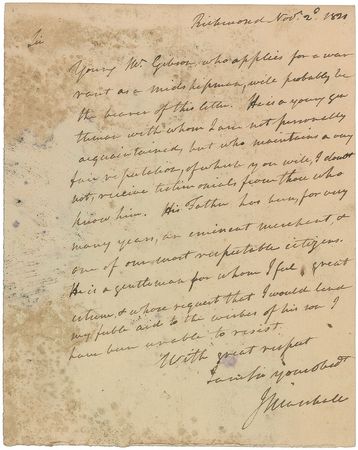 Richmond Nov. 2d 1821
Sir
Young Mr. Gibson, who applies for a war
rant as a midshipman, will probably be
the bearer of this letter. He is a young gen
tleman with whom I am not personally
acquainted, but who maintains a very
fair reputation, of which you will, I doubt
not, receive testimonials from those who
know him. His Father has been, for very
many years, an eminent merchant, &
one of our most respectable citizens.
He is a gentleman for whom I feel great
esteem, & whose request that I would lend
my feeble aid to the wishes of his son I
have been unable to resist.
With great respect
I am Sir your obedt
J Marshall